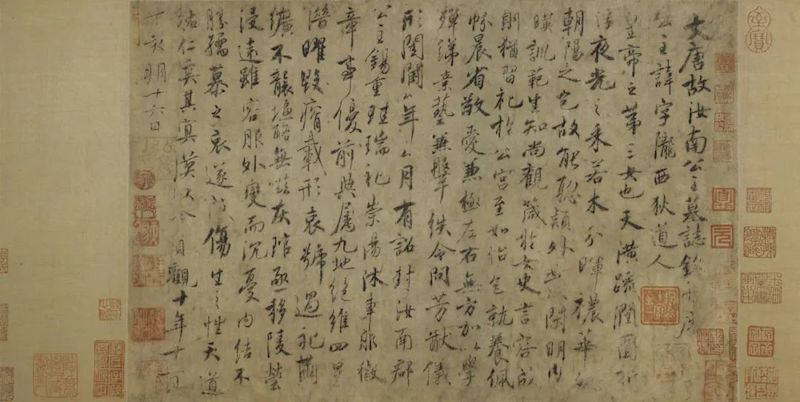 大唐故汝南公主墓誌銘并序
公主諱字隴西狄道人
皇帝之第三女也天潢疏潤圓折
浮夜光之采若木分暉穠華照
朝陽之色故能聰穎外發閑明內
暎訓範生知尚觀箴於女史言容成
則猶習礼於公宮至如怡色就養佩
帉晨省敬愛兼極左右無方加以學
殫綈素藝兼鞶紩令問芳猷儀
形閨閫厶年厶月有詔封汝南郡
公主錫重珪瑞礼崇湯沐車服徽
章事優前典屬九地絕維四星
潛曜毀瘠載形哀號過礼繭
纊不襲塩酪無嗞灰琯亟移陵塋
浸遠雖容服外變而沉憂內結不
勝孺慕之哀遂成傷生之性天道
祐仁奚其冥漠以今貞觀十年十一月
丁亥朔十六日